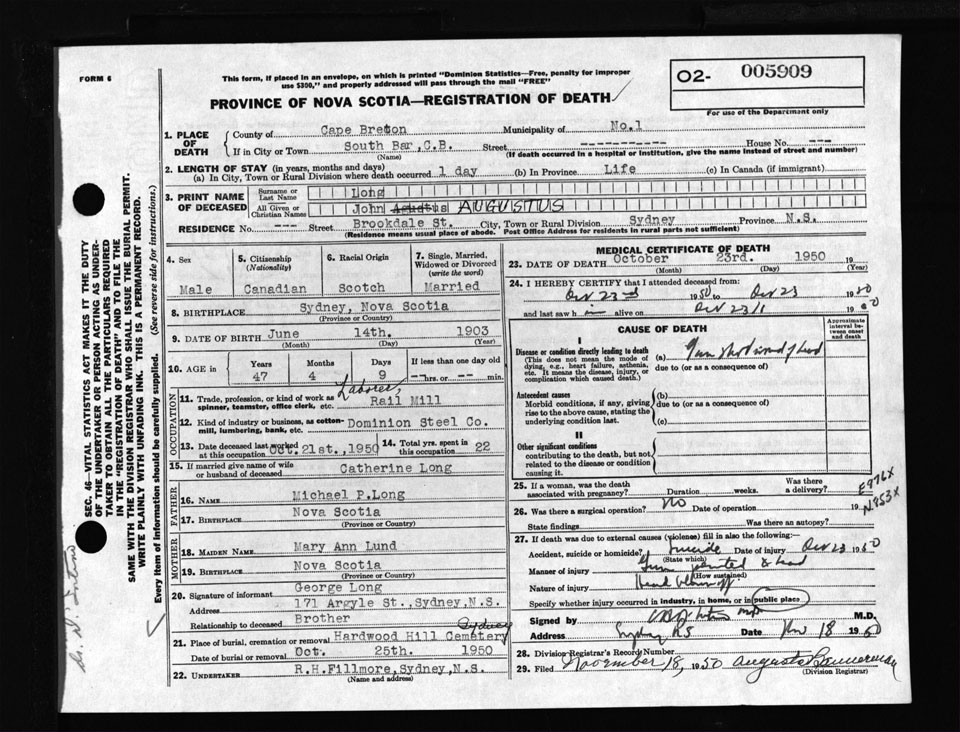 FORM 6
This form, if placed in an envelope, on which is printed "Dominion Statistics—Free, penalty for improper
use $300," and properly addressed will pass through the mail "FREE"
PROVINCE OF NOVA SCOTIA—REGISTRATION OF DEATH
O2- 005909
For use of the Department only
1. PLACE OF DEATH
County of Cape Breton Municipality of No.1
If in City or Town South Bar, C.B. Street ---------- House No. ---
(Name) (If death occurred in a hospital or institution, give the name instead of street and number)
2. LENGTH OF STAY (in years, months and days)
(a) In City, Town or Rural Division where death occurred 1 day (b) In Province Life (c) In Canada (if immigrant)
3. PRINT NAME OF DECEASED
Surname or Last Name Long
All Given or Christian Names John Agustus AUGUSTUS
RESIDENCE No. --- Street Brookdale St. City, Town or Rural Division Sydney Province N.S.
(Residence means usual place of abode. Post Office Address for residents in rural parts not sufficient)
4. Sex
Male
5. Citizenship (Nationality)
Canadian
6. Racial Origin
Scotch
7. Single, Married, Widowed or Divorced (write the word)
Married
8. BIRTHPLACE Sydney, Nova Scotia
(Province or Country)
9. DATE OF BIRTH June 14th. 1903
(Month) (Day) (Year)
10. AGE in
Years Months Days If less than one day old
47 4 9 --- hrs. or --- min.
OCCUPATION
11. Trade, profession, or kind of work as spinner, teamster, office clerk, etc. Laborer, Rail Mill
12. Kind of industry or business, as cotton-mill, lumbering, bank, etc. Dominion Steel Co.
13. Date deceased last worked at this occupation Oct. 21st., 1950
14. Total yrs. spent in this occupation 22
15. If married give name of wife or husband of deceased Catherine Long
FATHER
16. NAME Michael P. Long
17. BIRTHPLACE Nova Scotia
(Province or Country)
MOTHER
18. MAIDEN NAME Mary Ann Lund
19. BIRTHPLACE Nova Scotia
(Province or Country)
20. Signature of informant George Long
Address 171 Argyle St., Sydney, N.S.
Relationship to deceased Brother
21. Place of burial, cremation or removal Hardwood Hill Cemetery Sydney
Date of burial or removal Oct. 25th. 1950
22. UNDERTAKER R.H. Fillmore, Sydney, N.S.
(Name and address)
MEDICAL CERTIFICATE OF DEATH
23. DATE OF DEATH October 23rd. 1950 19
(Month) (Day) (Year)
24. I HEREBY CERTIFY that I attended deceased from:
Oct 23rd 1950 to Oct 23 1950
and last saw him alive on Oct 23/1 1950
CAUSE OF DEATH
Approximate interval between onset and death
I
Disease or condition directly leading to death
(This does not mean the mode of dying, e.g., heart failure, asthenia, etc. It means the disease, injury, or complication which caused death.)
(a) Gun shot wound of head
due to (or as a consequence of)
Antecedent causes
Morbid conditions, if any, giving rise to the above cause, stating the underlying condition last.
(b)
due to (or as a consequence of)
(c)
II
Other significant conditions
contributing to the death, but not related to the disease or condition causing it.
25. If a woman, was the death associated with pregnancy? Duration weeks. Was there a delivery?
E976X
N853X
26. Was there a surgical operation? no Date of operation 19
State findings Was there an autopsy?
27. If death was due to external causes (violence) fill in also the following:—
Accident, suicide or homicide? Suicide Date of injury Oct 23 1950
(State which)
Manner of injury Gun pointed head
(How sustained)
Nature of injury Head blown off
Specify whether injury occurred in industry, in home, or in public place
Signed by M.D.
Address Sydney NS Date Nov 18 1950
28. Division Registrar's Record Number
29. Filed November 18, 1950
(Division Registrar)
SEC. 46—VITAL STATISTICS ACT MAKES IT THE DUTY
OF THE UNDERTAKER OR PERSON ACTING AS UNDER-
TAKER TO OBTAIN ALL THE PARTICULARS REQUIRED
IN THE "REGISTRATION OF DEATH" AND TO FILE THE
SAME WITH THE DIVISION REGISTRAR WHO SHALL ISSUE THE BURIAL PERMIT.
WRITE PLAINLY WITH UNFADING INK. THIS IS A PERMANENT RECORD.
Every item of information should be carefully supplied. (See reverse side for instructions.)